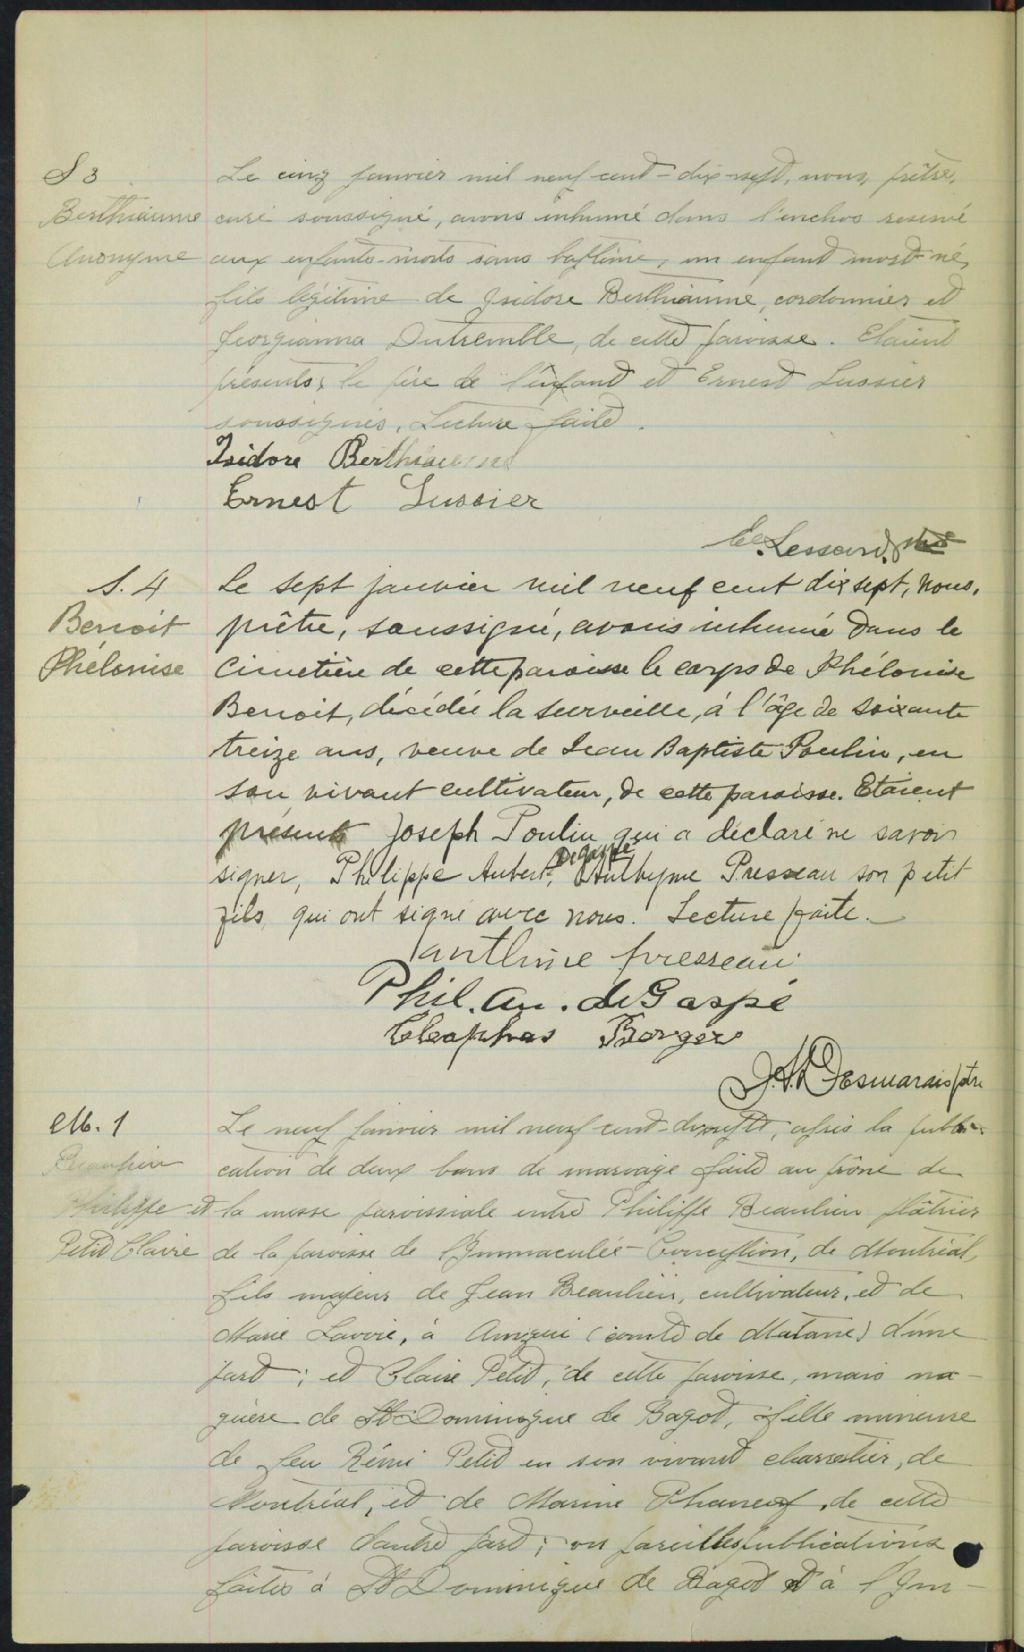 S 3
Berthiaume
Anonyme
Le cinq janvier mil neuf cent-dix-sept, nous, prêtre,
curé soussigné, avons inhumé dans l'enclos reservé
aux enfants morts sans baptême, un enfant mort-né,
fils légitime de Isidore Berthiaume, cordonnier et
Georgianna Dutremble, de cette paroisse. Etaient
présents; le père de l'enfant et Ernest Lussier
soussignés, Lecture faite.
Isidore Berthiaume
Ernest Lussier
Lessard, ptre
S. 4
Benoit
Phélonise
Le sept janvier mil neuf cent dix sept, nous,
prêtre, soussigné, avons inhumé dans le
cimetière de cette paroisse le corps de Phélonise
Benoit, décédée la surveille, à l'âge de soixante
treize ans, veuve de Jean Baptiste Poulin, en
son vivant cultivateur, de cette paroisse. Etaient
présents Joseph Poulin qui a déclaré ne savoir
signer, Philippe Aubert, DeGaspé Anthyme Presseau son petit
fils, qui ont signé avec nous. Lecture faite.
anthime presseau
Phil. Au. de Gaspé
Cleophas Berger
Desmarais ptre
M. 1
Beaulieu
Philippe et
Petit Claire
Le neuf janvier mil neuf cent-dix-sept, après la publi-
cation de deux bans de mariage faite au prône de
la messe paroissiale entre Philippe Beaulieu plâtrier
de la paroisse de l'Immaculée-Conception, de Montréal,
fils majeur de Jean Beaulieu, cultivateur, et de
Marie Lavoie, à Amqui (comté de Matane) d'une
part; et Claire Petit, de cette paroisse, mais na-
guère de St Dominique de Bagot, fille mineure
de feu Rémi Petit en son vivant charretier, de
Montréal, et de Marine Phaneuf, de cette
paroisse d'autre part; vu pareilles publications
faites à St Dominique de Bagot et à l'Im-